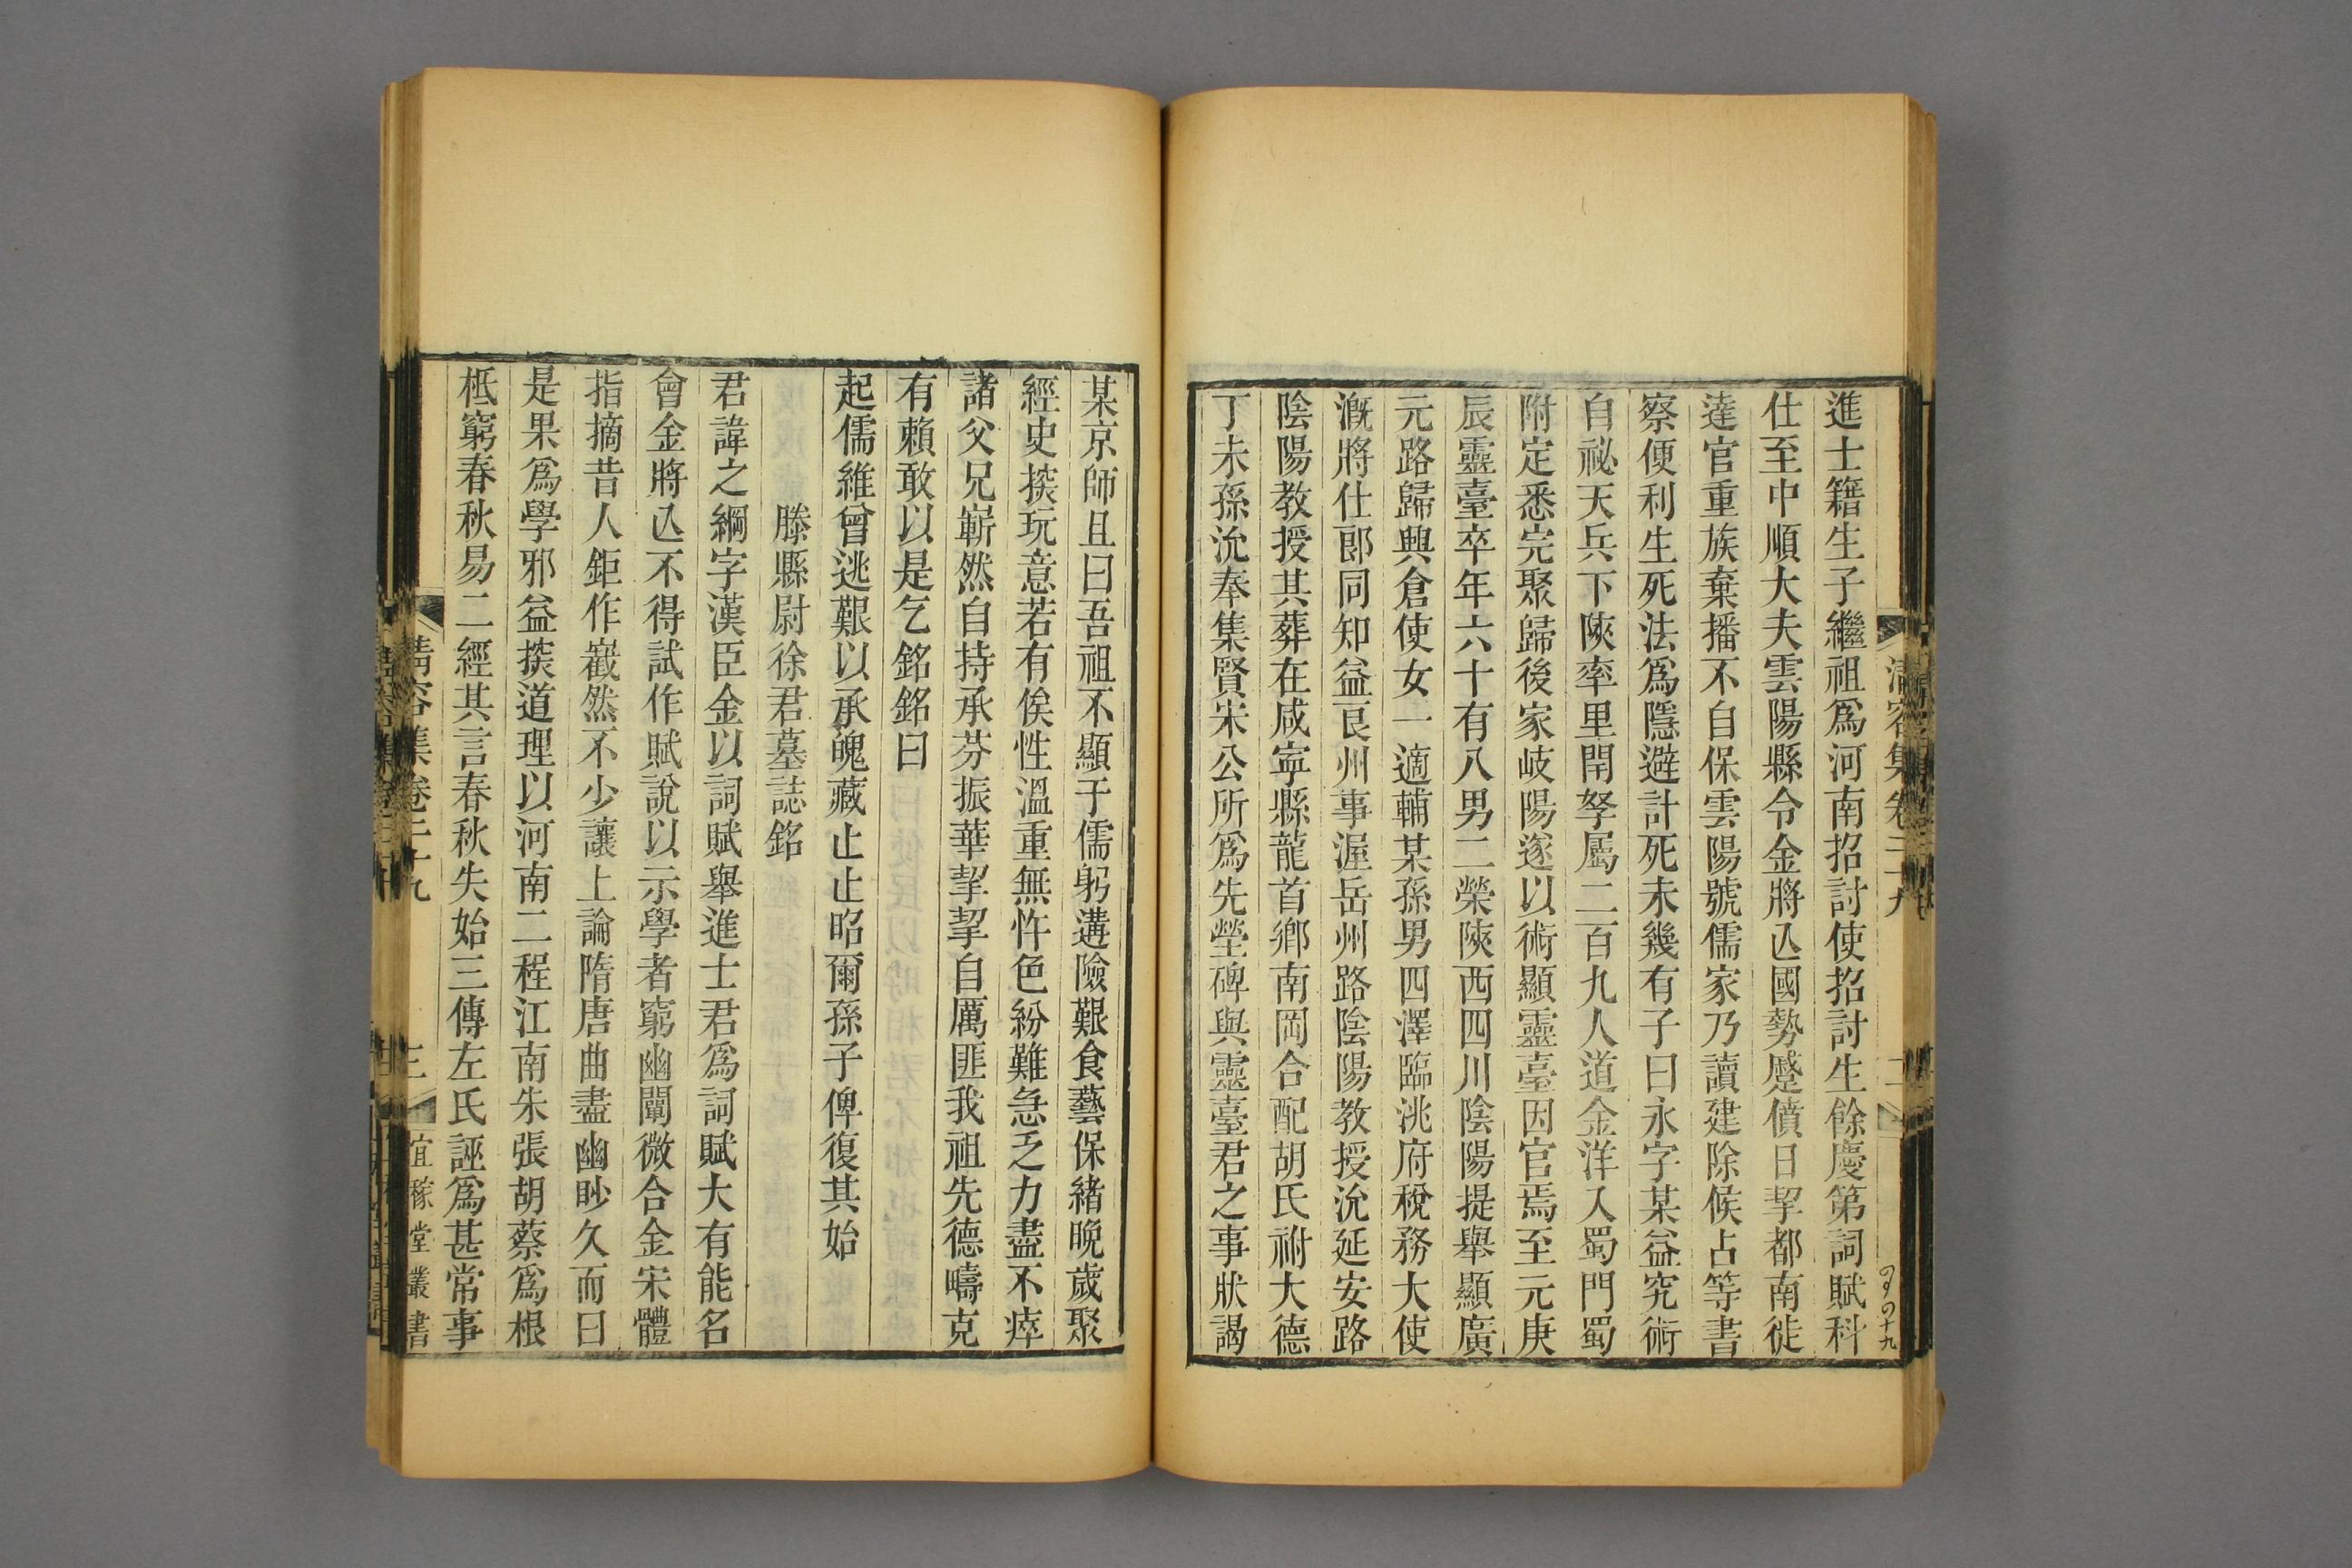 進士籍生子繼祖爲河南招討使招討生餘慶第詞賦科
仕至中順大夫雲陽縣令金將亾國勢蹙僨日挈都南徙
達官重族棄播不自保雲陽號儒家乃讀建除候占等書
察便利生死法爲隱避計死未幾有子曰永字某益究術
自祕天兵下陝率里閈孥屬二百九人道金洋入蜀門蜀
附定悉完聚歸後家岐陽遂以術顯靈臺因官焉至元庚
辰靈臺卒年六十有八男二榮陝西四川陰陽提舉顯廣
元路歸興倉使女一適輔某孫男四澤臨洮府稅務大使
溉將仕郎同知益良州事渥岳州路陰陽教授沇延安路
陰陽教授其葬在咸寧縣龍首鄉南岡合配胡氏祔大德
丁未孫沇奉集賢宋公所爲先塋碑與靈臺君之事狀謁
某京師且曰吾祖不顯于儒躬遘險艱食藝保緒晚歲聚
經史㨷玩意若有俟性溫重無忤色紛難急乏力盡不瘁
諸父兄嶄然自持承芬振華挈挈自厲匪我祖先德疇克
有賴敢以是乞銘銘曰
起儒維曾逃艱以承魄藏止止昭爾孫子俾復其始
滕縣尉徐君墓誌銘
君諱之綱字漢臣金以詞賦舉進士君爲詞賦大有能名
會金將亾不得試作賦說以示學者窮幽闡微合金宋體
指摘昔人鉅作巀然不少讓上論隋唐曲盡幽眇久而曰
是果爲學邪益㨷道理以河南二程江南朱張胡蔡爲根
柢窮春秋易二經其言春秋失始三傳左氏誣爲甚常事
清容集卷二十九
三
宜稼堂叢書